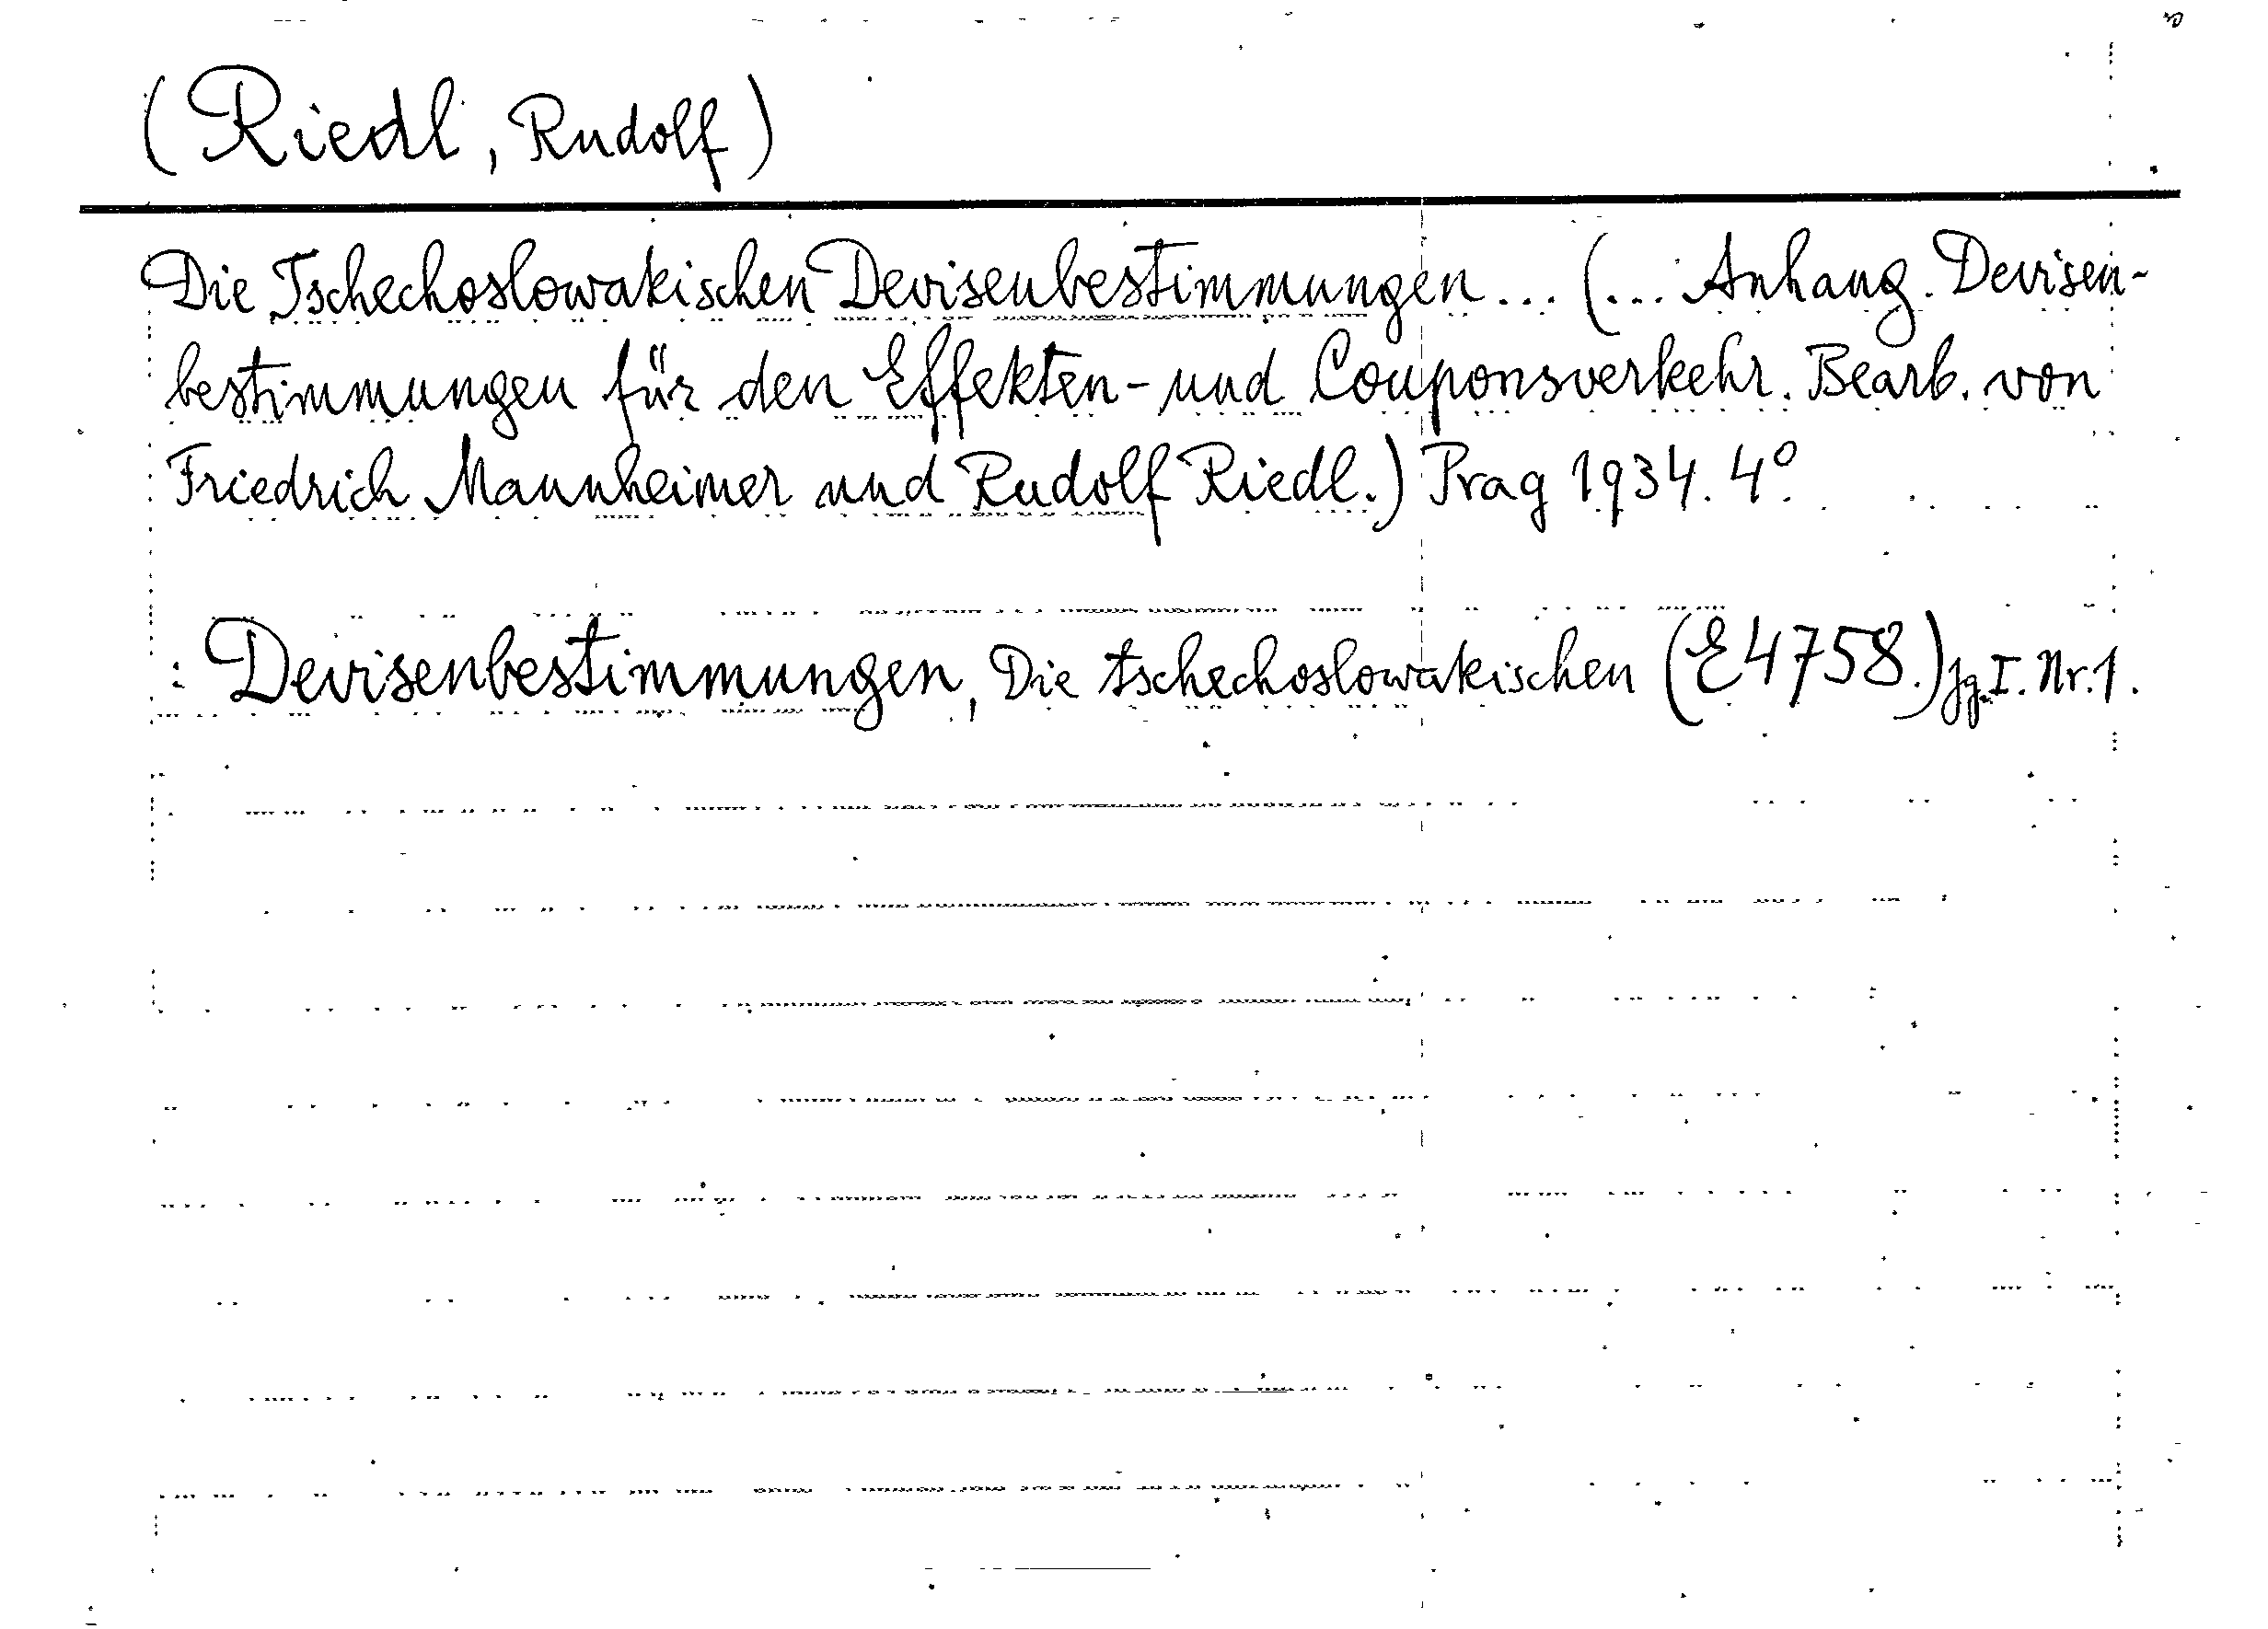 (Riedl, Rudolf)
Die Tschechoslowakischen Devisenbestimmungen ... (... Anhang. Devisen-
bestimmungen für den Effekten- und Couponsverkehr. Bearb. von
Friedrich Mannheimer und Rudolf Riedl.) Prag 1934. 4°.
: Devisenbestimmungen, Die tschechoslowakischen (E 4758.) Jg. I. Nr. 1.